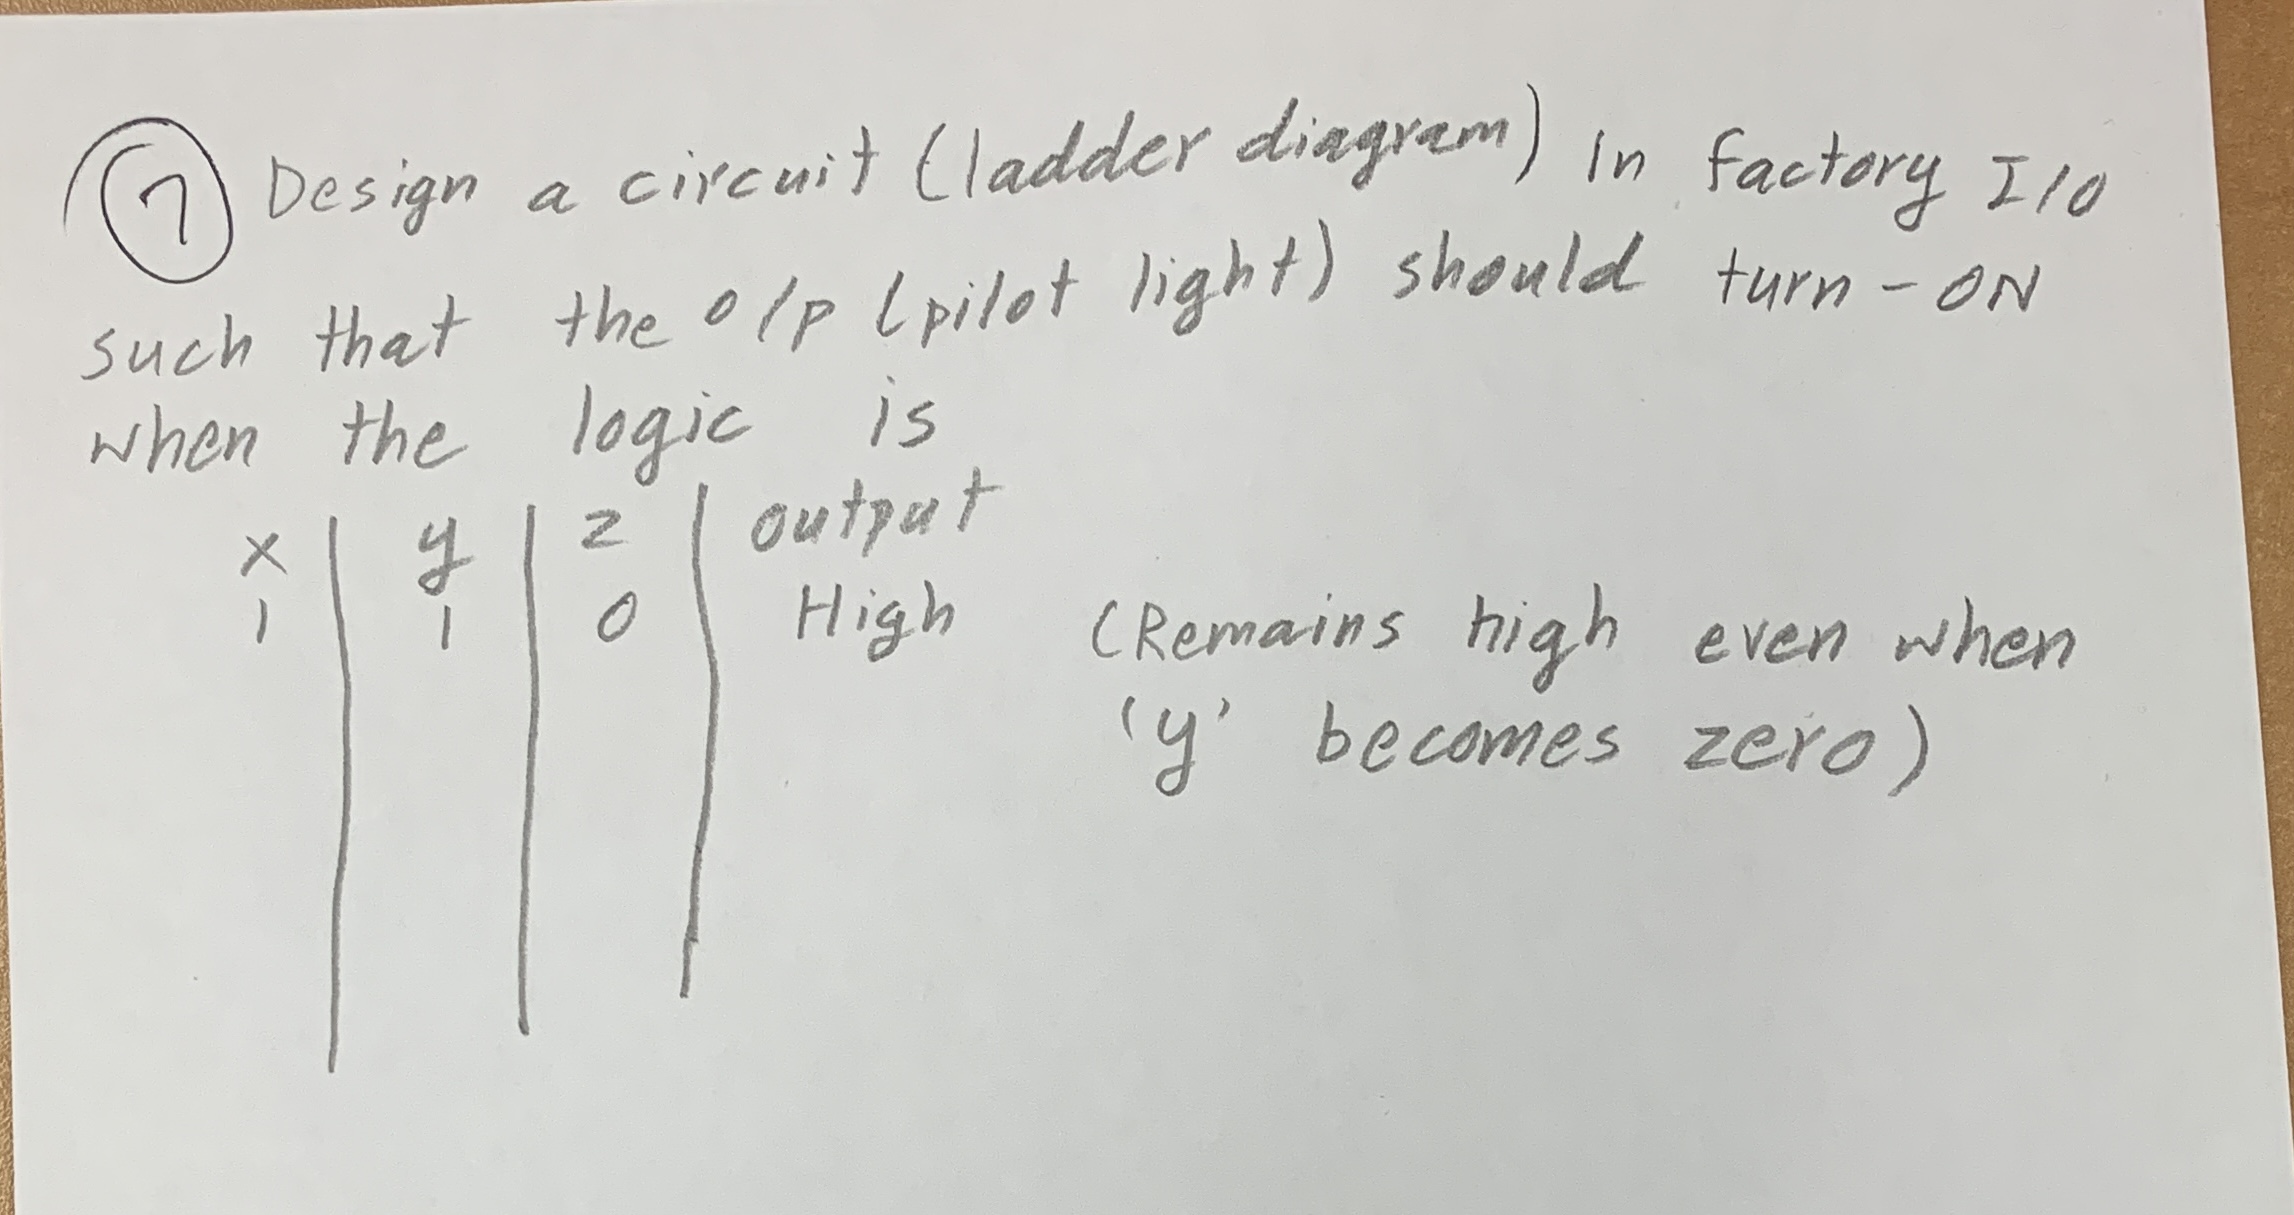 7 Design a circuit (ladder diagram) in factory I/O
such that the o/p (pilot light) should turn-ON
when the logic is
x | y | z | output
1 | 1 | 0 | High (Remains high even when
'y' becomes zero)